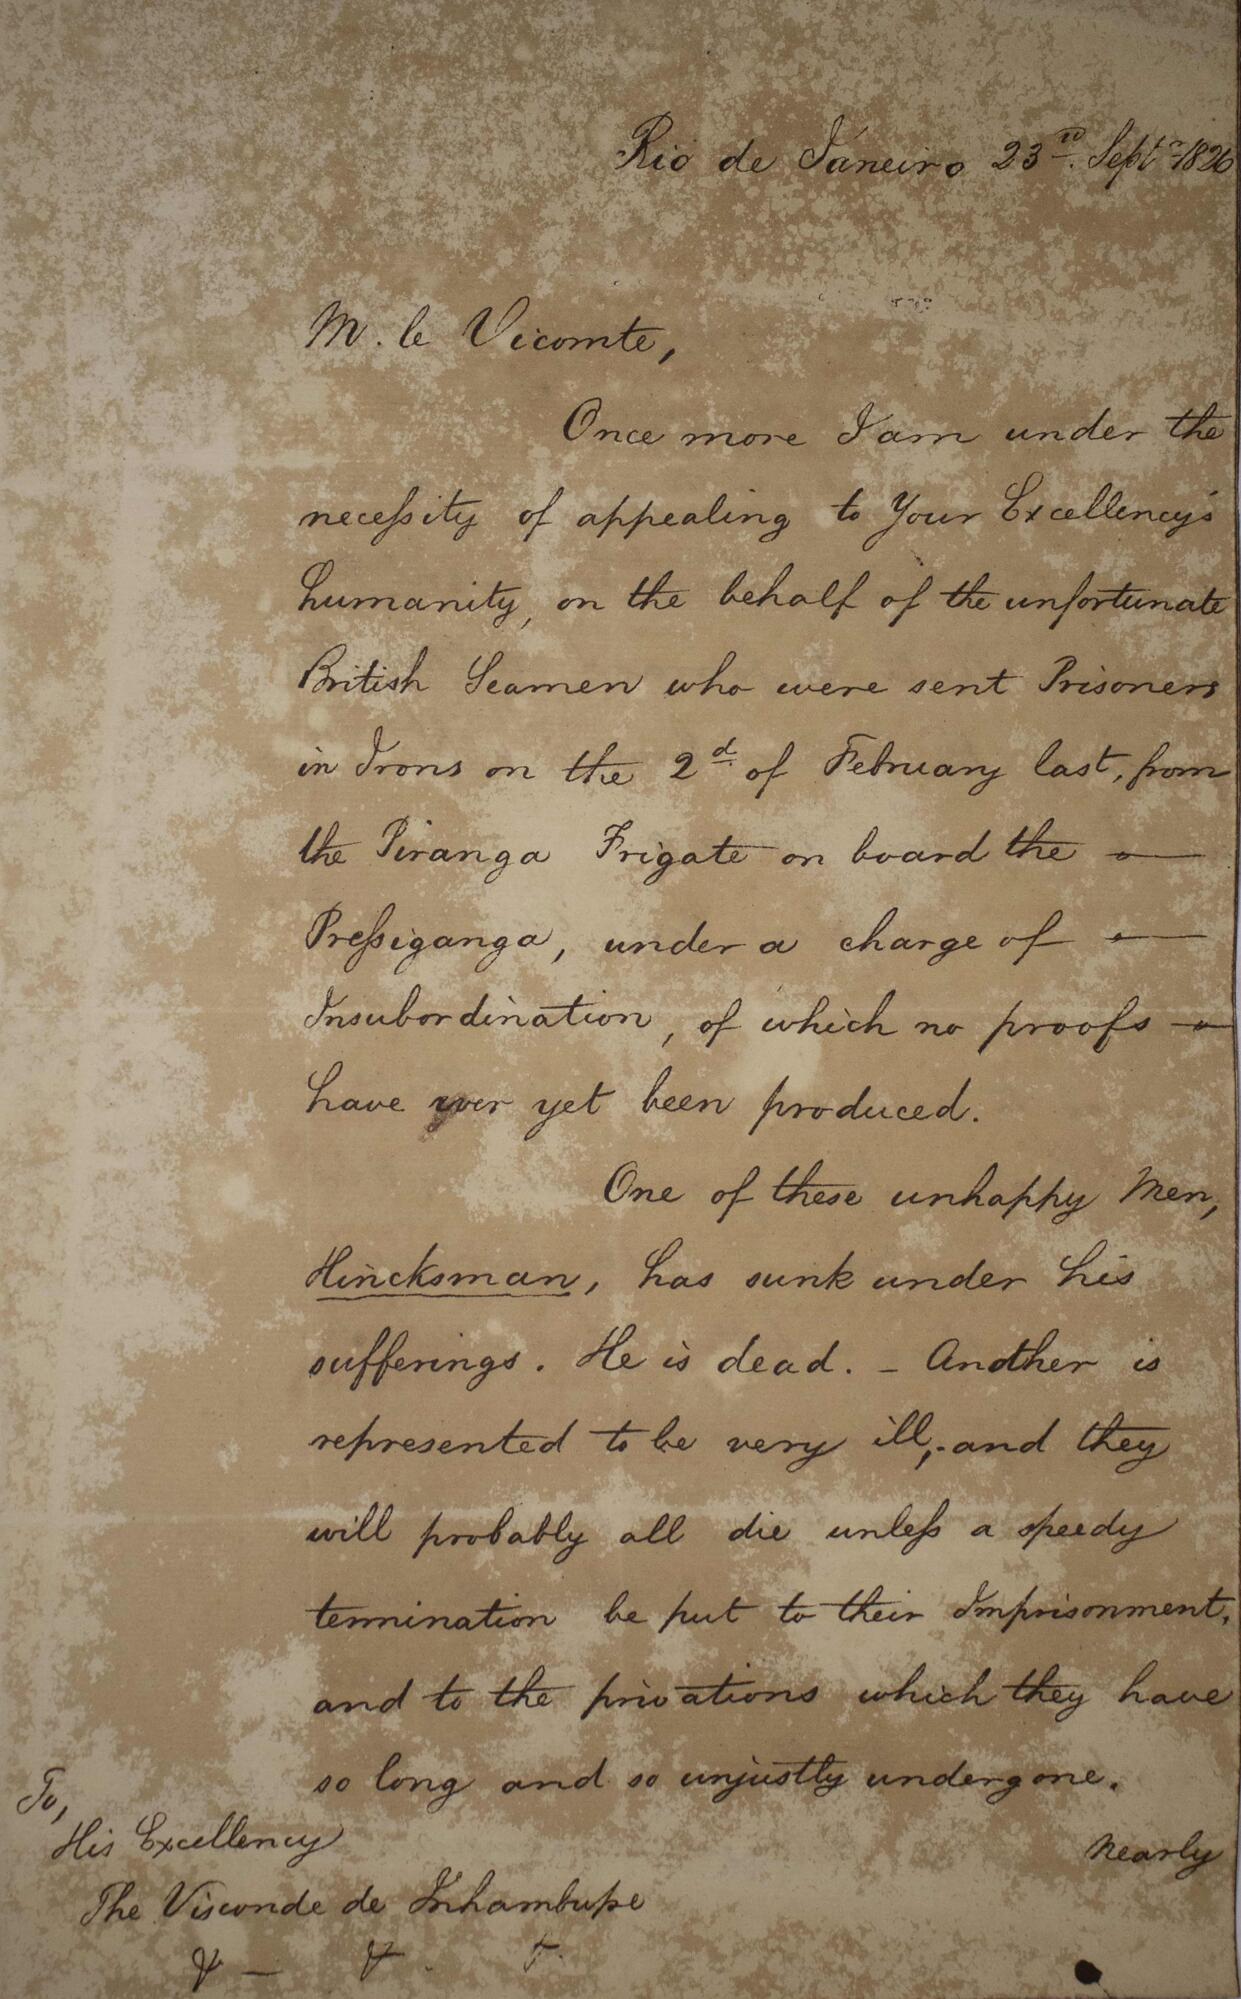 Rio de Janeiro 23rd. Septr 1826
M. le Vicomte,
Once more I am under the
necessity of appealing to Your Excellency's
humanity, on the behalf of the unfortunate
British Seamen who were sent Prisoners
in Irons on the 2d of February last, from
the Piranga Frigate on board the —
Pressiganga, under a charge of —
Insubordination, of which no proofs —
have ever yet been produced.
One of these unhappy Men,
Hincksman, has sunk under his
sufferings. He is dead. - Another is
represented to be very ill,- and they
will probably all die unless a speedy
termination be put to their Imprisonment,
and to the privations which they have
so long and so unjustly undergone.
nearly
To,
His Excellency
The Visconde de Inhambupe
& — & . &.